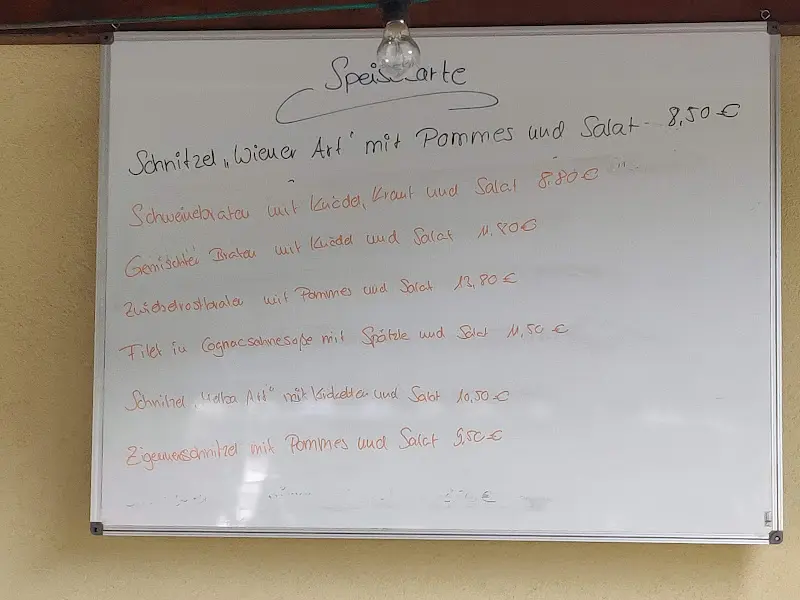 Speisekarte
Schnitzel „Wiener Art" mit Pommes und Salat - 8,50 €
Schweinebraten mit Knödel, Kraut und Salat 8,80 €
Gemischter Braten mit Knödel und Salat 11,80 €
Zwiebelrostbraten mit Pommes und Salat 13,80 €
Filet in Cognacsahnesoße mit Spätzle und Salat 11,50 €
Schnitzel Art" mit und Salat 10,50 €
Zigeunerschnitzel mit Pommes und Salat 9,50 €
€